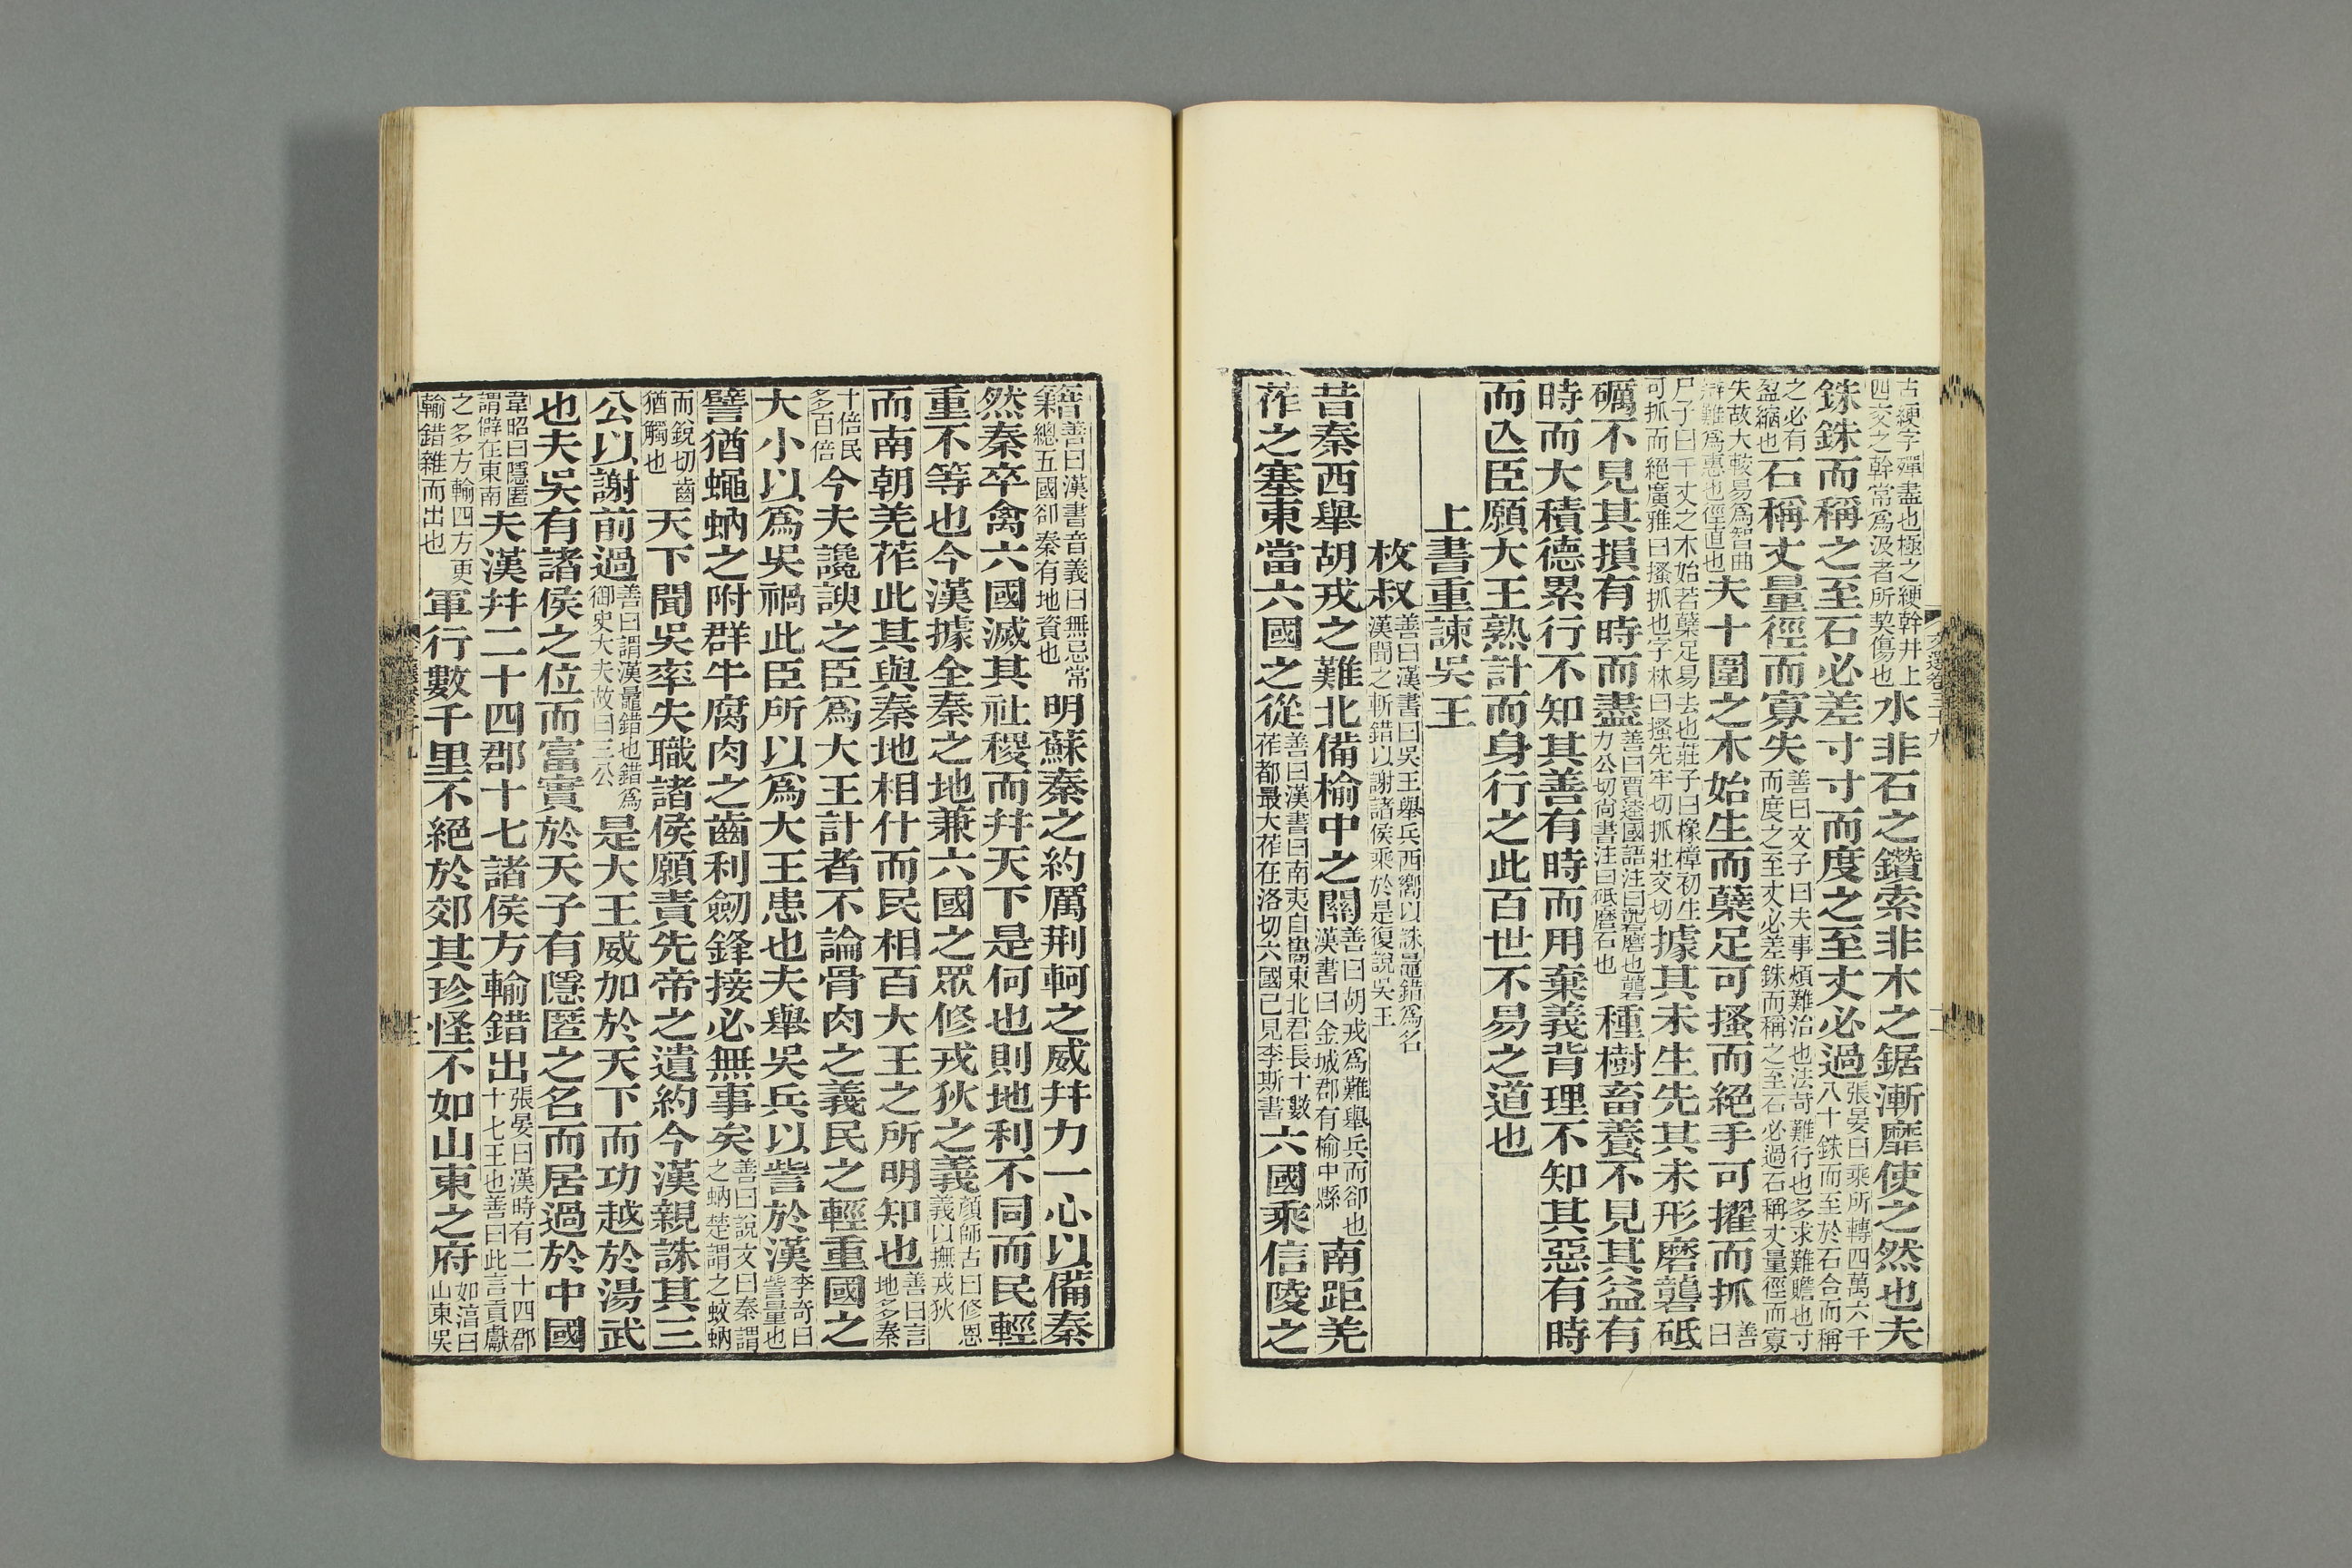 古綆字殫盡也極之綆幹井上四交之幹常爲汲者所契傷也水非石之鑽索非木之鋸漸靡使之然也夫
銖銖而稱之至石必差寸寸而度之至丈必過張晏曰乘所轉四萬六千八十銖而至於石合而稱
之必有盈縮也石稱丈量徑而寡失善曰文子曰夫事煩難治也法苛難行也多求難贍也寸而度之至丈必差銖而稱之至石必過石稱丈量徑而寡
失故大較易爲智曲辯難爲惠也徑直也夫十圍之木始生而蘖足可搔而絕手可擢而抓善曰
尸子曰干丈之木始若蘖足易去也莊子曰橡樟初生可抓而絕廣雅曰搔抓也字林曰搔先牢切抓壯交切據其未生先其未形磨礱砥
礪不見其損有時而盡善曰賈逵國語注曰礱磨也礱力公切尚書注曰砥磨石也種樹畜養不見其益有
時而大積德累行不知其善有時而用棄義背理不知其惡有時
而亾臣願大王熟計而身行之此百世不易之道也
上書重諫吳王
枚叔善曰漢書曰吳王舉兵西嚮以誅鼂錯爲名漢聞之斬錯以謝諸侯乘於是復說吳王
昔秦西舉胡戎之難北備榆中之關善曰胡戎爲難舉兵而卻也漢書曰金城郡有榆中縣南距羌
莋之塞東當六國之從善曰漢書曰南夷自巂東北君長十數莋都最大莋在洛切六國已見李斯書六國乘信陵之
籍善曰漢書音義曰無忌常總五國卻秦有地資也明蘇秦之約厲荆軻之威幷力一心以備秦
然秦卒禽六國滅其社稷而幷天下是何也則地利不同而民輕
重不等也今漢據全秦之地兼六國之眾修戎狄之義顏師古曰修恩義以撫戎狄
而南朝羌莋此其與秦地相什而民相百大王之所明知也善曰言地多秦
十倍民多百倍今夫讒諛之臣爲大王計者不論骨肉之義民之輕重國之
大小以爲吳禍此臣所以爲大王患也夫舉吳兵以訾於漢李奇曰訾量也
譬猶蠅蚋之附群牛腐肉之齒利劒鋒接必無事矣善曰說文曰秦謂之蚋楚謂之蚊蚋
而銳切齒猶觸也天下聞吳率失職諸侯願責先帝之遺約今漢親誅其三
公以謝前過善曰謂漢鼂錯也錯爲御史大夫故曰三公是大王威加於天下而功越於湯武
也夫吳有諸侯之位而富實於天子有隱匿之名而居過於中國
韋昭曰隱匿謂僻在東南夫漢幷二十四郡十七諸侯方輸錯出張晏曰漢時有二十四郡十七王也善曰此言貢獻
之多方輸四方更輸錯雜而出也軍行數千里不絕於郊其珍怪不如山東之府如淳曰山東吳